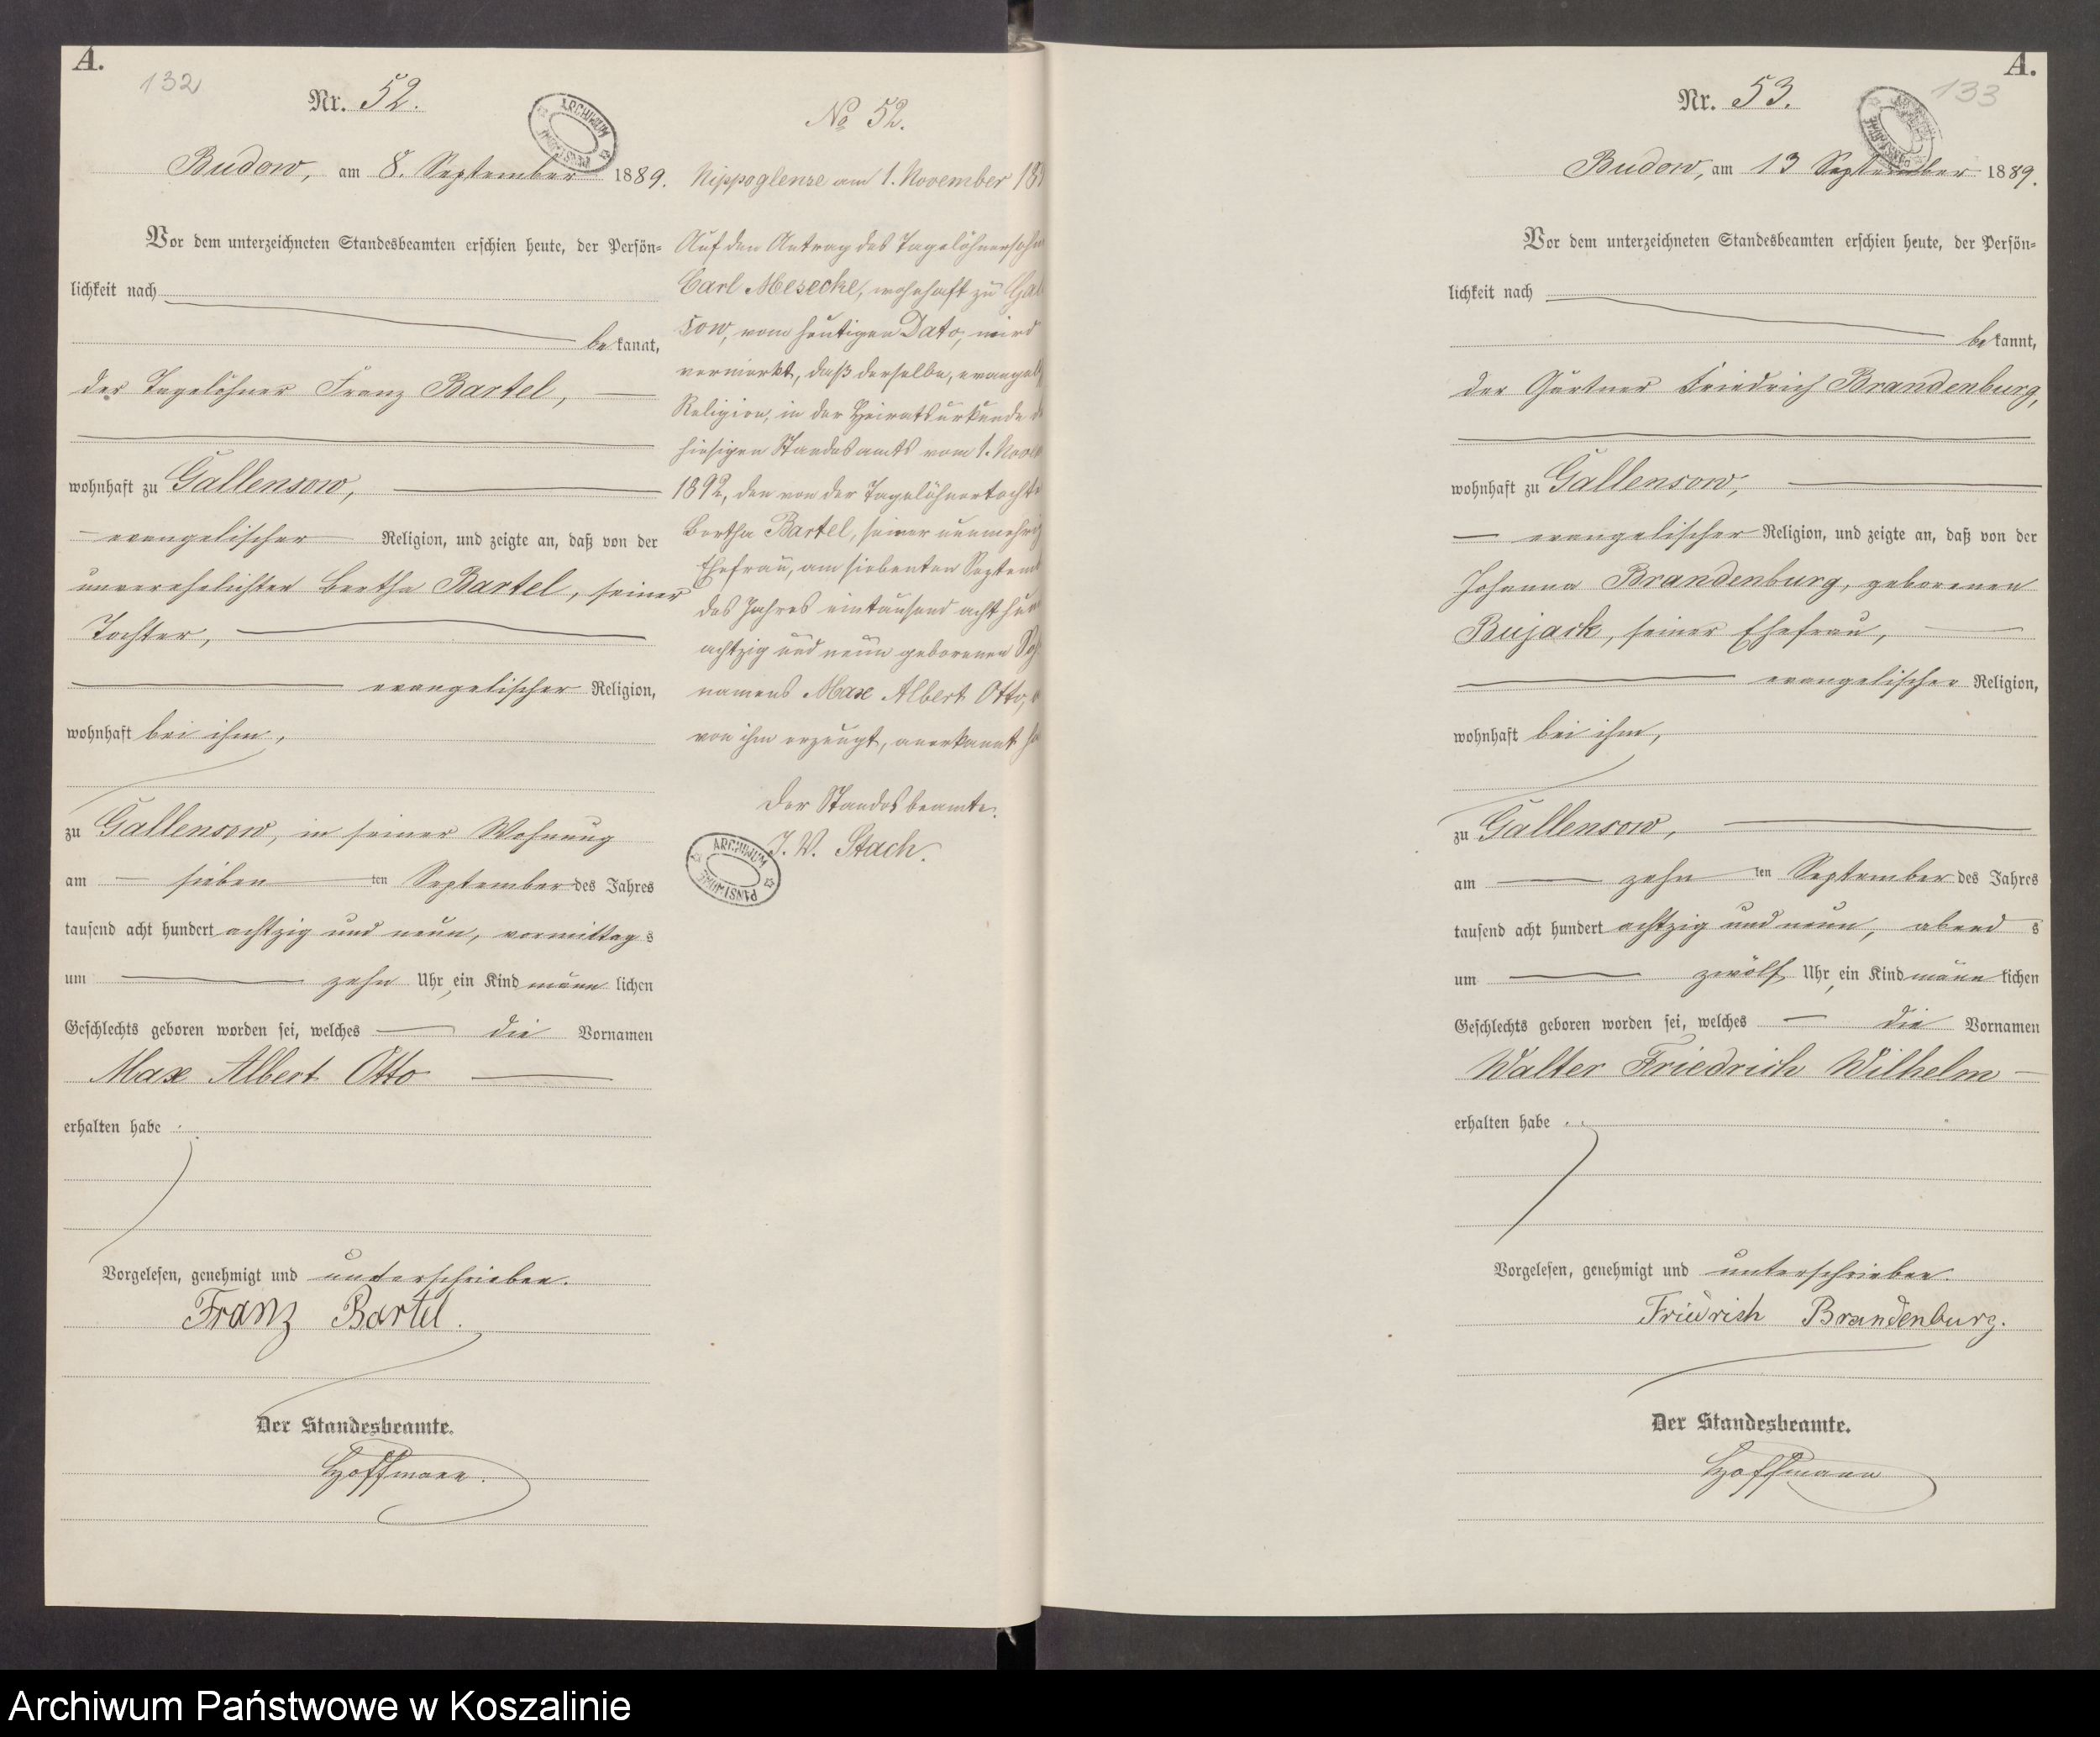 A.
132
Nr. 52.
ARCHIWUM PAŃSTWOWE
Budow, am 8. September 1889.
Vor dem unterzeichneten Standesbeamten erschien heute, der Persön-
lichkeit nach
be kannt,
der Tagelöhner Franz Bartel,
wohnhaft zu Gallensow,
evangelischer Religion, und zeigte an, daß von der
unverehelichten Bertha Bartel, seiner
Tochter,
evangelischer Religion,
wohnhaft bei ihm,
zu Gallensow, in seiner Wohnung
am sieben ten September des Jahres
tausend acht hundert achtzig und neun, vormittag s
um zehn Uhr, ein Kind männ lichen
Geschlechts geboren worden sei, welches die Vornamen
Max Albert Otto
erhalten habe.
Vorgelesen, genehmigt und unterschrieben.
Franz Bartel.
Der Standesbeamte.
Hoffmann.
No 52.
Nippoglense am 1. November 18
Auf den Antrag des Tagelöhnersohn
Carl Mesecke, wohnhaft zu Gal
sow, vom heutigen Dato, wird
vermerkt, daß derselbe, evangel
Religion, in der Heiratsurkunde d
hiesigen Standesamts vom 1. Nov
1892, den von der Tagelöhnertocht
Bertha Bartel, seiner nunmehrig
Ehefrau, am siebenten Septem
des Jahres eintausend acht hun
achtzig und neun geborenen So
namens Max Albert Otto,
von ihm erzeugt, anerkannt h
Der Standesbeamte.
J. V. Stach.
ARCHIWUM PAŃSTWOWE
A.
133
Nr. 53.
ARCHIWUM PAŃSTWOWE
Budow, am 13 September 1889.
Vor dem unterzeichneten Standesbeamten erschien heute, der Persön-
lichkeit nach
be kannt,
der Gärtner Friedrich Brandenburg,
wohnhaft zu Gallensow,
evangelischer Religion, und zeigte an, daß von der
Johanna Brandenburg, geborenen
Bujack, seiner Ehefrau,
evangelischer Religion,
wohnhaft bei ihm,
zu Gallensow,
am zehn ten September des Jahres
tausend acht hundert achtzig und neun, abend s
um zwölf Uhr, ein Kind männ lichen
Geschlechts geboren worden sei, welches die Vornamen
Walter Friedrich Wilhelm
erhalten habe.
Vorgelesen, genehmigt und unterschrieben.
Friedrich Brandenburg.
Der Standesbeamte.
Hoffmann
Archiwum Państwowe w Koszalinie